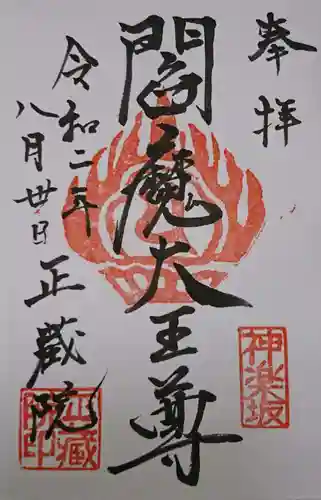 奉拝
閻魔大王尊
令和二年
八月丗日
正蔵院
神楽坂